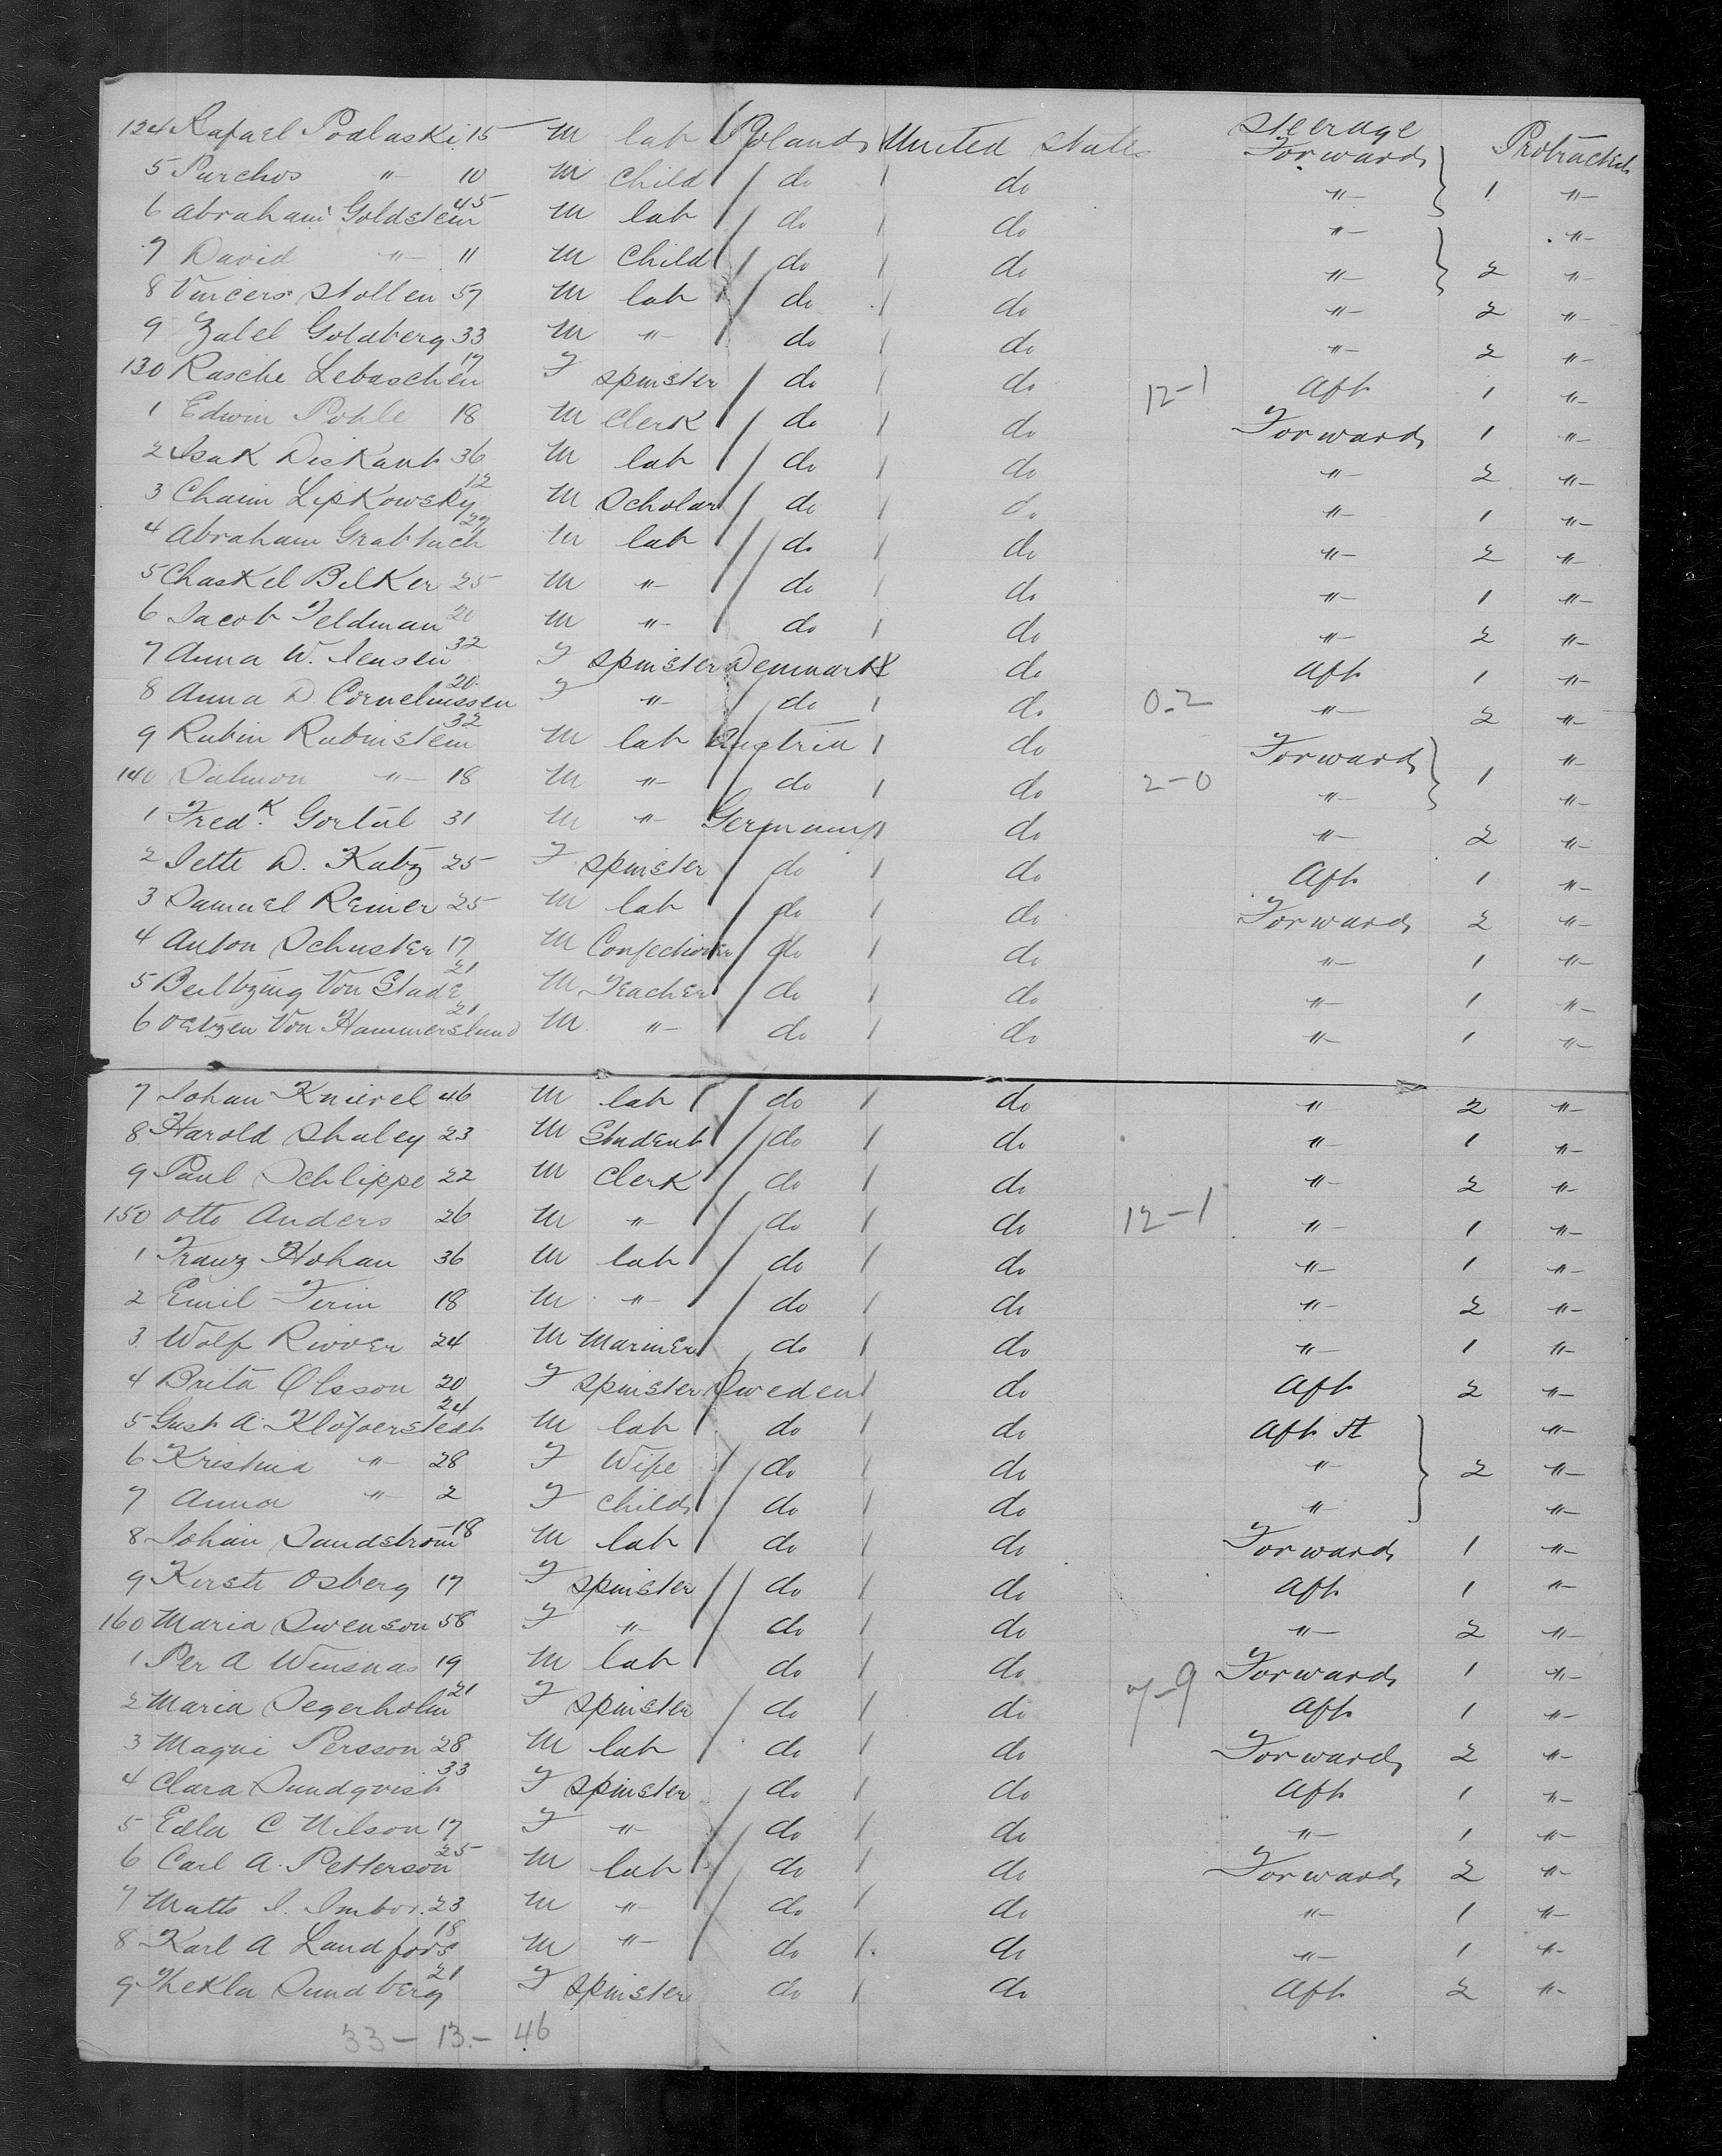 124 Rafael Podlaski 15 M lab Poland United States Steerage Forward Protracted
5 Purchos " 10 M Child do do " 1 "
6 Abraham Goldstein 45 M lab do do " "
7 David " 11 M Child do do " 2 "
8 Vincers Stollen 57 M lab do do " 2 "
9 Zabel Goldberg 33 M " do do " 2 "
130 Rasche Lebaschen 17 F Spinster do do 12-1 Aft 1 "
1 Edwin Pohle 18 M Clerk do do Forward 1 "
2 Isak Diskant 36 M lab do do " 2 "
3 Chaim Lipkowsky 12 M Scholar do do " 1 "
4 Abraham 29 M lab do do " 2 "
5 Chaskel Bilker 25 M " do do " 1 "
6 Jacob Feldman 20 M " do do " 2 "
7 Anna W. Jensen 32 F Spinster Denmark do Aft 1 "
8 Anna D. Corneliussen 20 F " do do 0-2 " 2 "
9 Rubin Rubinstein 32 M lab Austria do Forward "
140 Salmon " 18 M " do do 2-0 " 1 "
1 Fredk. Gortal 31 M " Germany do " 2 "
2 Jette D. Katz 25 F Spinster do do Aft 1 "
3 Samuel Reiner 25 M lab do do Forward 2 "
4 Anton Schuster 17 M Confectioner do do " 1 "
5 Von Stade 21 M Teacher do do " 1 "
6 Oetzen Von Hammerslund 21 M " do do " 1 "
7 Johan Knierel 46 M lab do do " 2 "
8 Harold Shaley 23 M Student do do " 1 "
9 Paul Schlippe 22 M Clerk do do " 2 "
150 Otto Anders 26 M " do do 12-1 " 1 "
1 Franz Hohan 36 M lab do do " 1 "
2 Emil Firin 18 M " do do " 2 "
3 Wolf 24 M Mariner do do " 1 "
4 Brita Olsson 20 F Spinster Sweden do Aft 2 "
5 Gust A. Klöfverstedt 24 M lab do do Aft St "
6 Kristina " 28 F Wife do do " 2 "
7 Anna " 2 F Child do do " "
8 Johan Sandstrom 18 M lab do do Forward 1 "
9 Kersti Osberg 17 F Spinster do do Aft 1 "
160 Maria Swenson 58 F " do do " 2 "
1 Per A Winsnas 19 M lab do do 7-9 Forward 1 "
2 Maria Segerholm 21 F Spinster do do Aft 1 "
3 Magni Persson 28 M lab do do Forward 2 "
4 Clara Sundqvist 33 F Spinster do do Aft 1 "
5 Edla C Nilson 17 F " do do " 1 "
6 Carl A. Petterson 25 M lab do do Forward 2 "
7 Matts J. 23 M " do do " 1 "
8 Karl A Landfors 18 M " do do " 1 "
9 Thekla Sundberg 21 F Spinster do do Aft 2 "
33 - 13 - 46